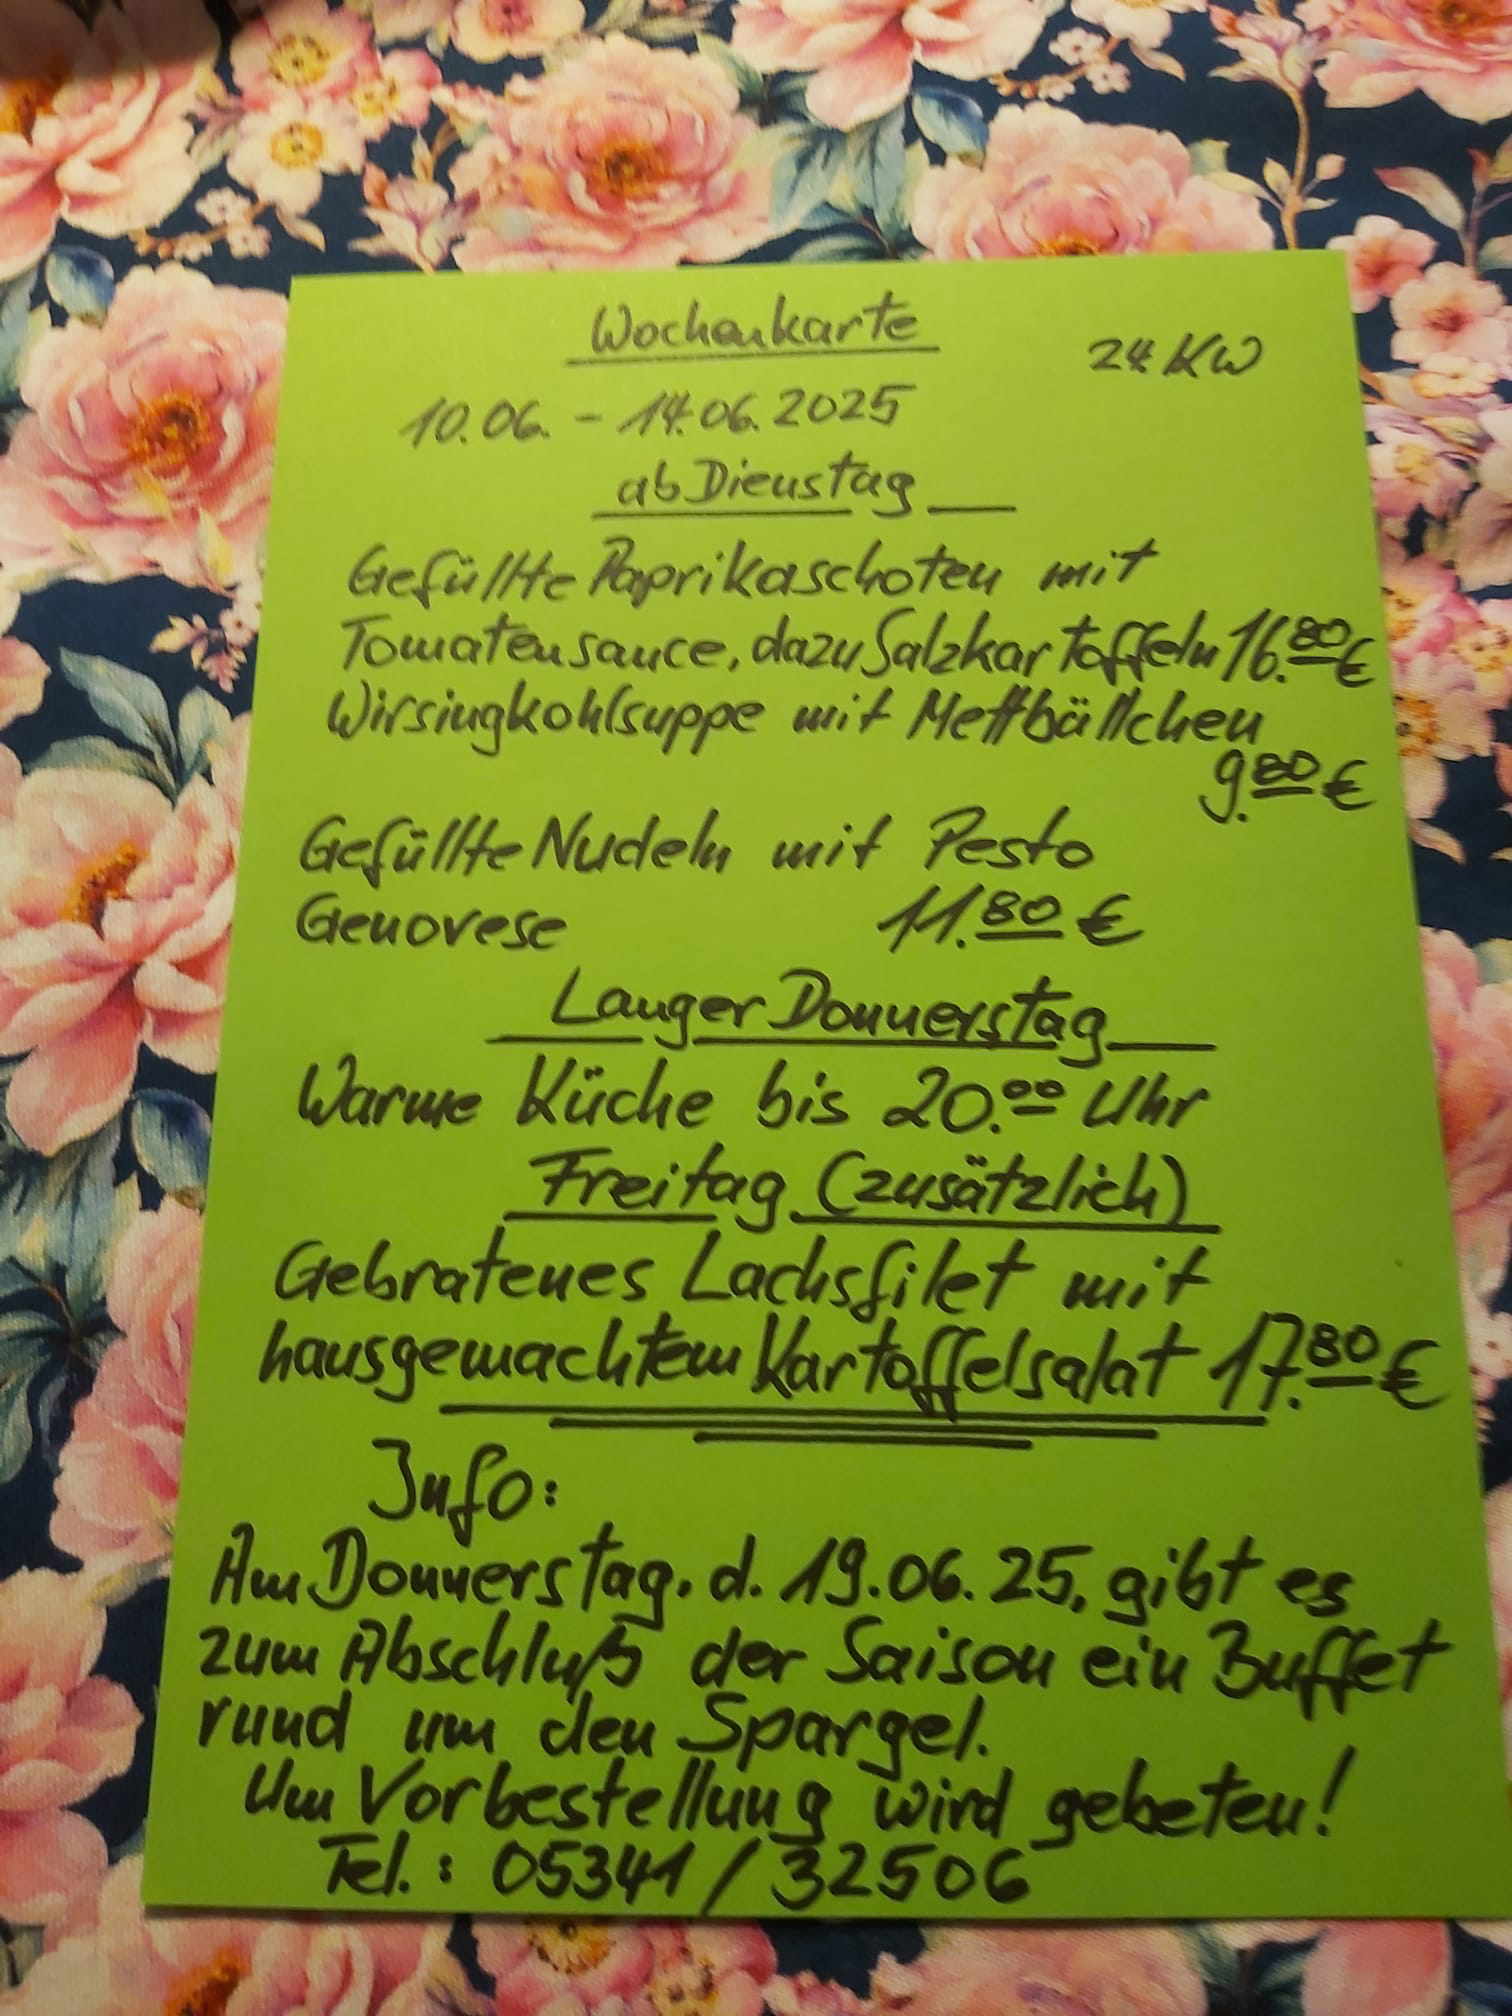 Wochenkarte
24. KW
10.06. - 14.06.2025
ab Dienstag
Gefüllte Paprikaschoten mit
Tomatensauce, dazu Salzkartoffeln 16.80 €
Wirsingkohlsuppe mit Mettbällchen
9.80 €
Gefüllte Nudeln mit Pesto
Genovese 11.80 €
Langer Donnerstag
Warme Küche bis 20.00 Uhr
Freitag (zusätzlich)
Gebratenes Lachsfilet mit
hausgemachtem Kartoffelsalat 17.80 €
Info:
Am Donnerstag, d. 19.06.25, gibt es
zum Abschluß der Saison ein Buffet
rund um den Spargel.
Um Vorbestellung wird gebeten!
Tel.: 05341/32506